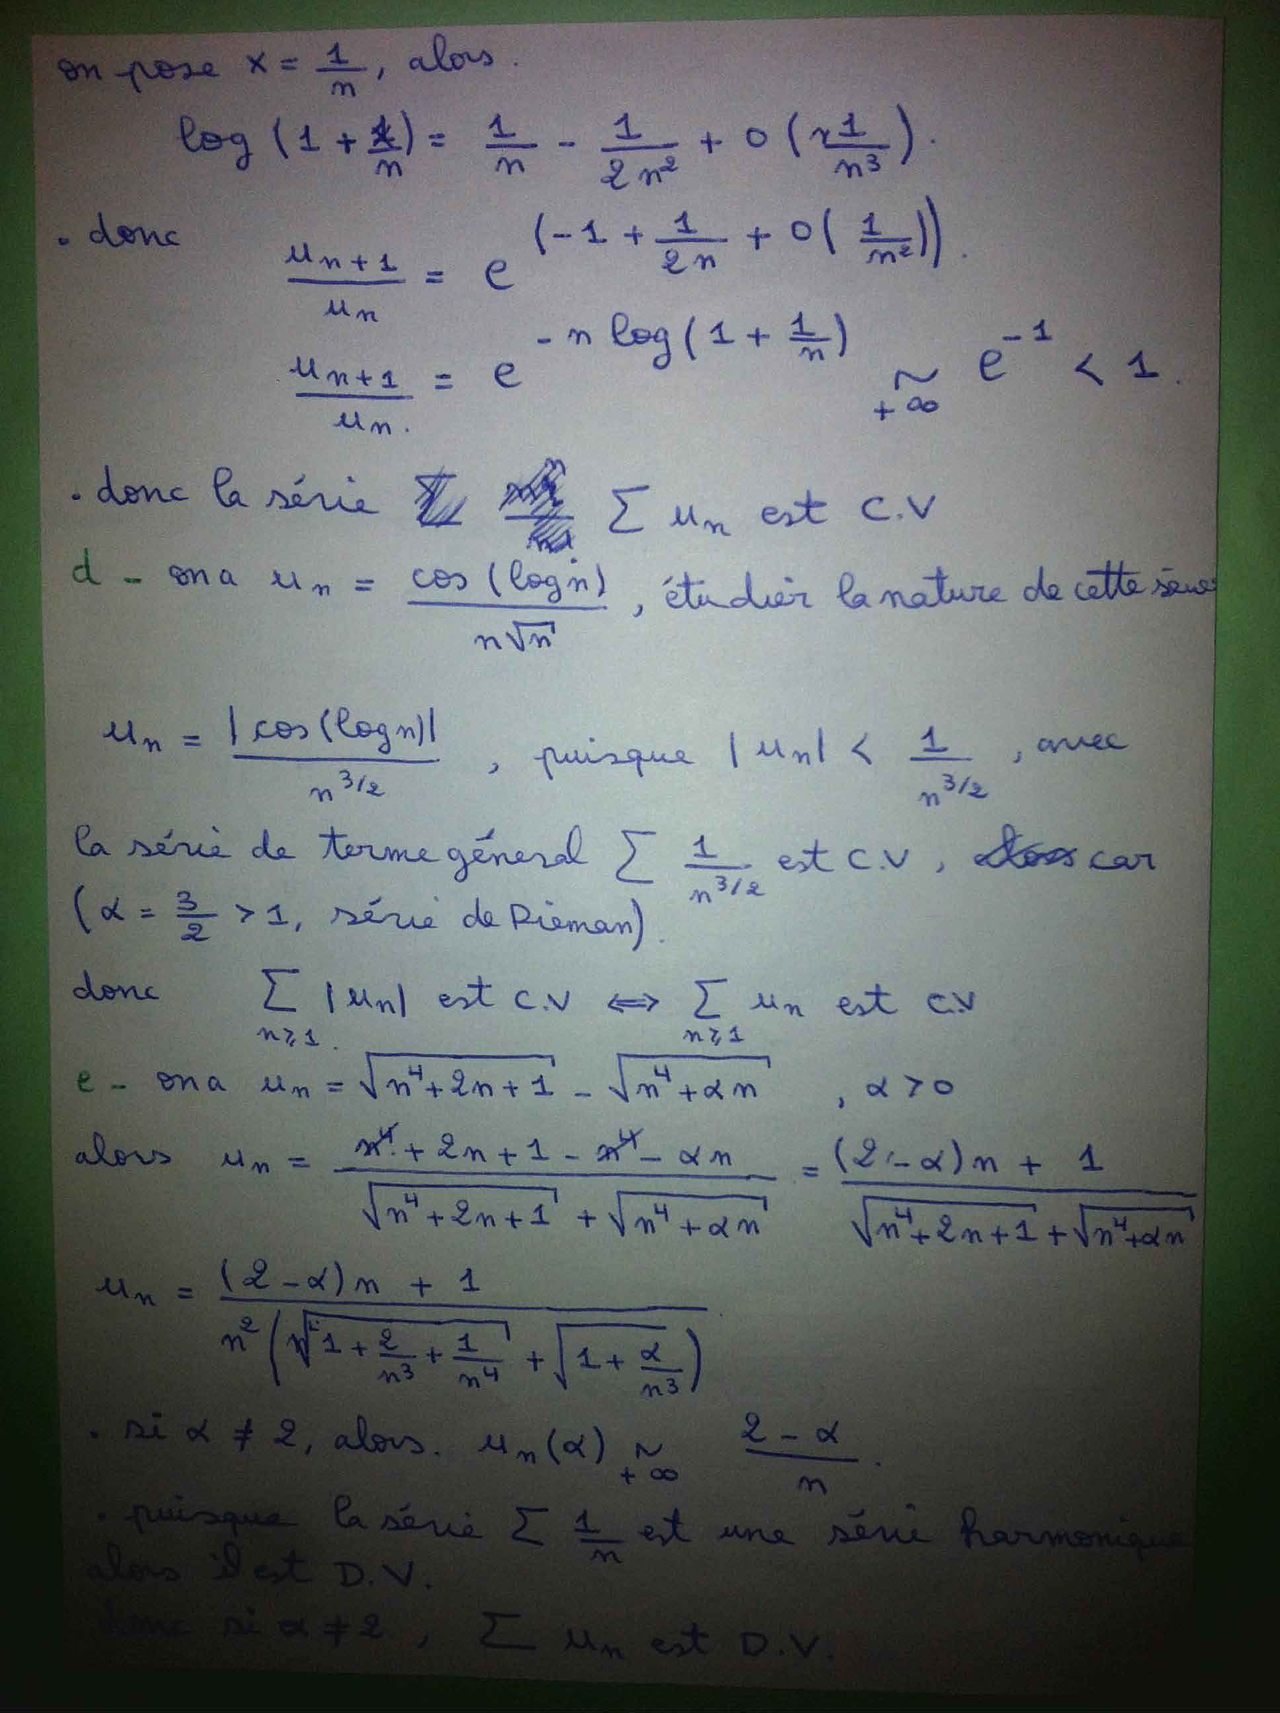 on pose x = 1/n, alors.
log (1 + 1/n) = 1/n - 1/2n² + o(1/n³).
. donc u_{n+1}/u_n = e^{(-1 + 1/2n + o(1/n²))}.
u_{n+1}/u_n. = e^{-n log(1 + 1/n)} ~_{+∞} e^{-1} < 1.
. donc la série ∑ u_n est C.V
d - on a u_n = cos(log n)/n√n, étudier la nature de cette série
u_n = |cos(log n)|/n^{3/2}, puisque |u_n| < 1/n^{3/2}, avec
la série de terme général ∑ 1/n^{3/2} est C.V, car
(α = 3/2 > 1, série de Rieman).
donc ∑_{n≥1} |u_n| est C.V ⇔ ∑_{n≥1} u_n est C.V
e - on a u_n = √(n⁴+2n+1) - √(n⁴+αn), α > 0
alors u_n = (n⁴ + 2n + 1 - n⁴ - αn)/(√(n⁴+2n+1) + √(n⁴+αn)) = ((2-α)n + 1)/(√(n⁴+2n+1) + √(n⁴+αn))
u_n = ((2-α)n + 1)/(n²(√(1 + 2/n³ + 1/n⁴) + √(1 + α/n³)))
. si α ≠ 2, alors. u_n(α) ~_{+∞} (2-α)/n.
. puisque la série ∑ 1/n est une série harmonique
alors il est D.V.
donc si α ≠ 2, ∑ u_n est D.V.